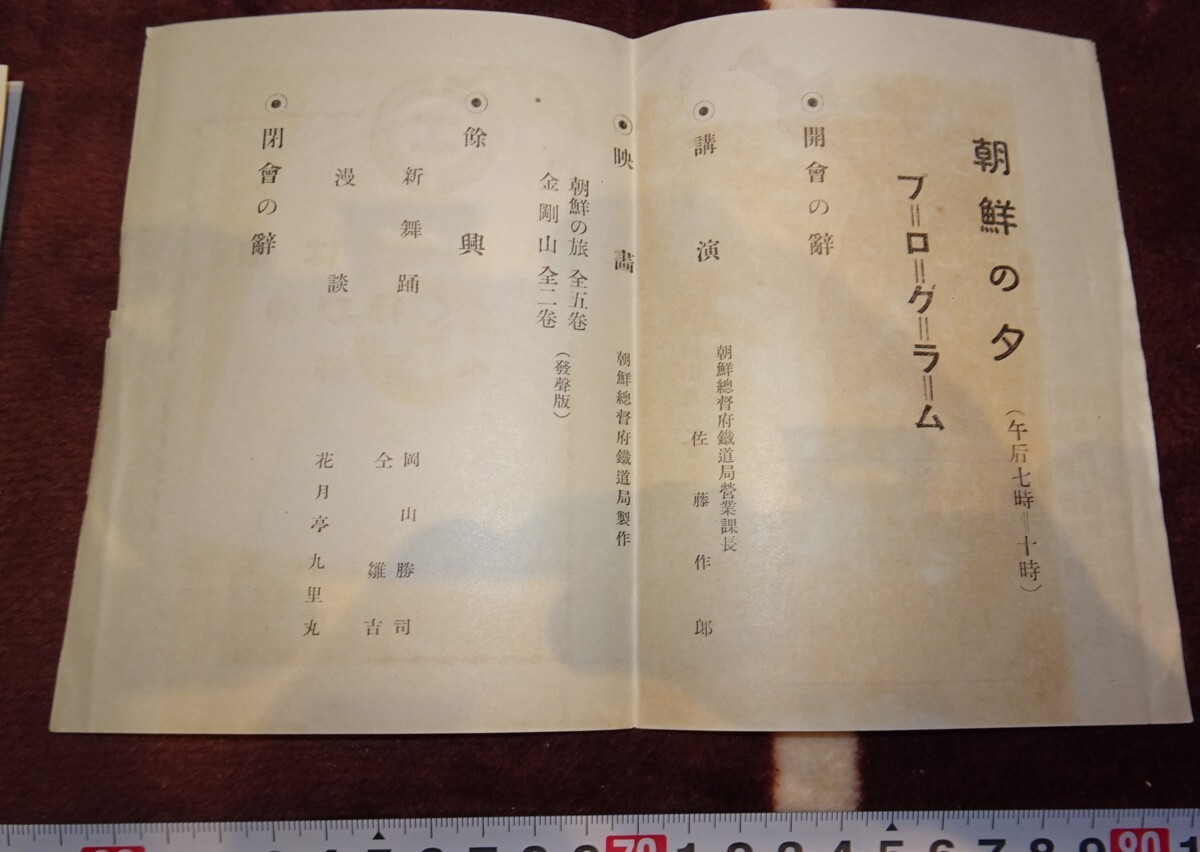 朝鮮の夕（午后七時＝十時）
プ＝ロ＝グ＝ラ＝ム
開會の辭
講演
朝鮮總督府鐵道局營業課長
佐藤作郎
映畵
朝鮮總督府鐵道局製作
朝鮮の旅 全五卷
金剛山 全二卷（發聲版）
餘興
新舞踊 岡山勝司
仝 雛吉
漫談 花月亭九里丸
閉會の辭
70 1 2 3 4 5 6 7 8 9 80 1